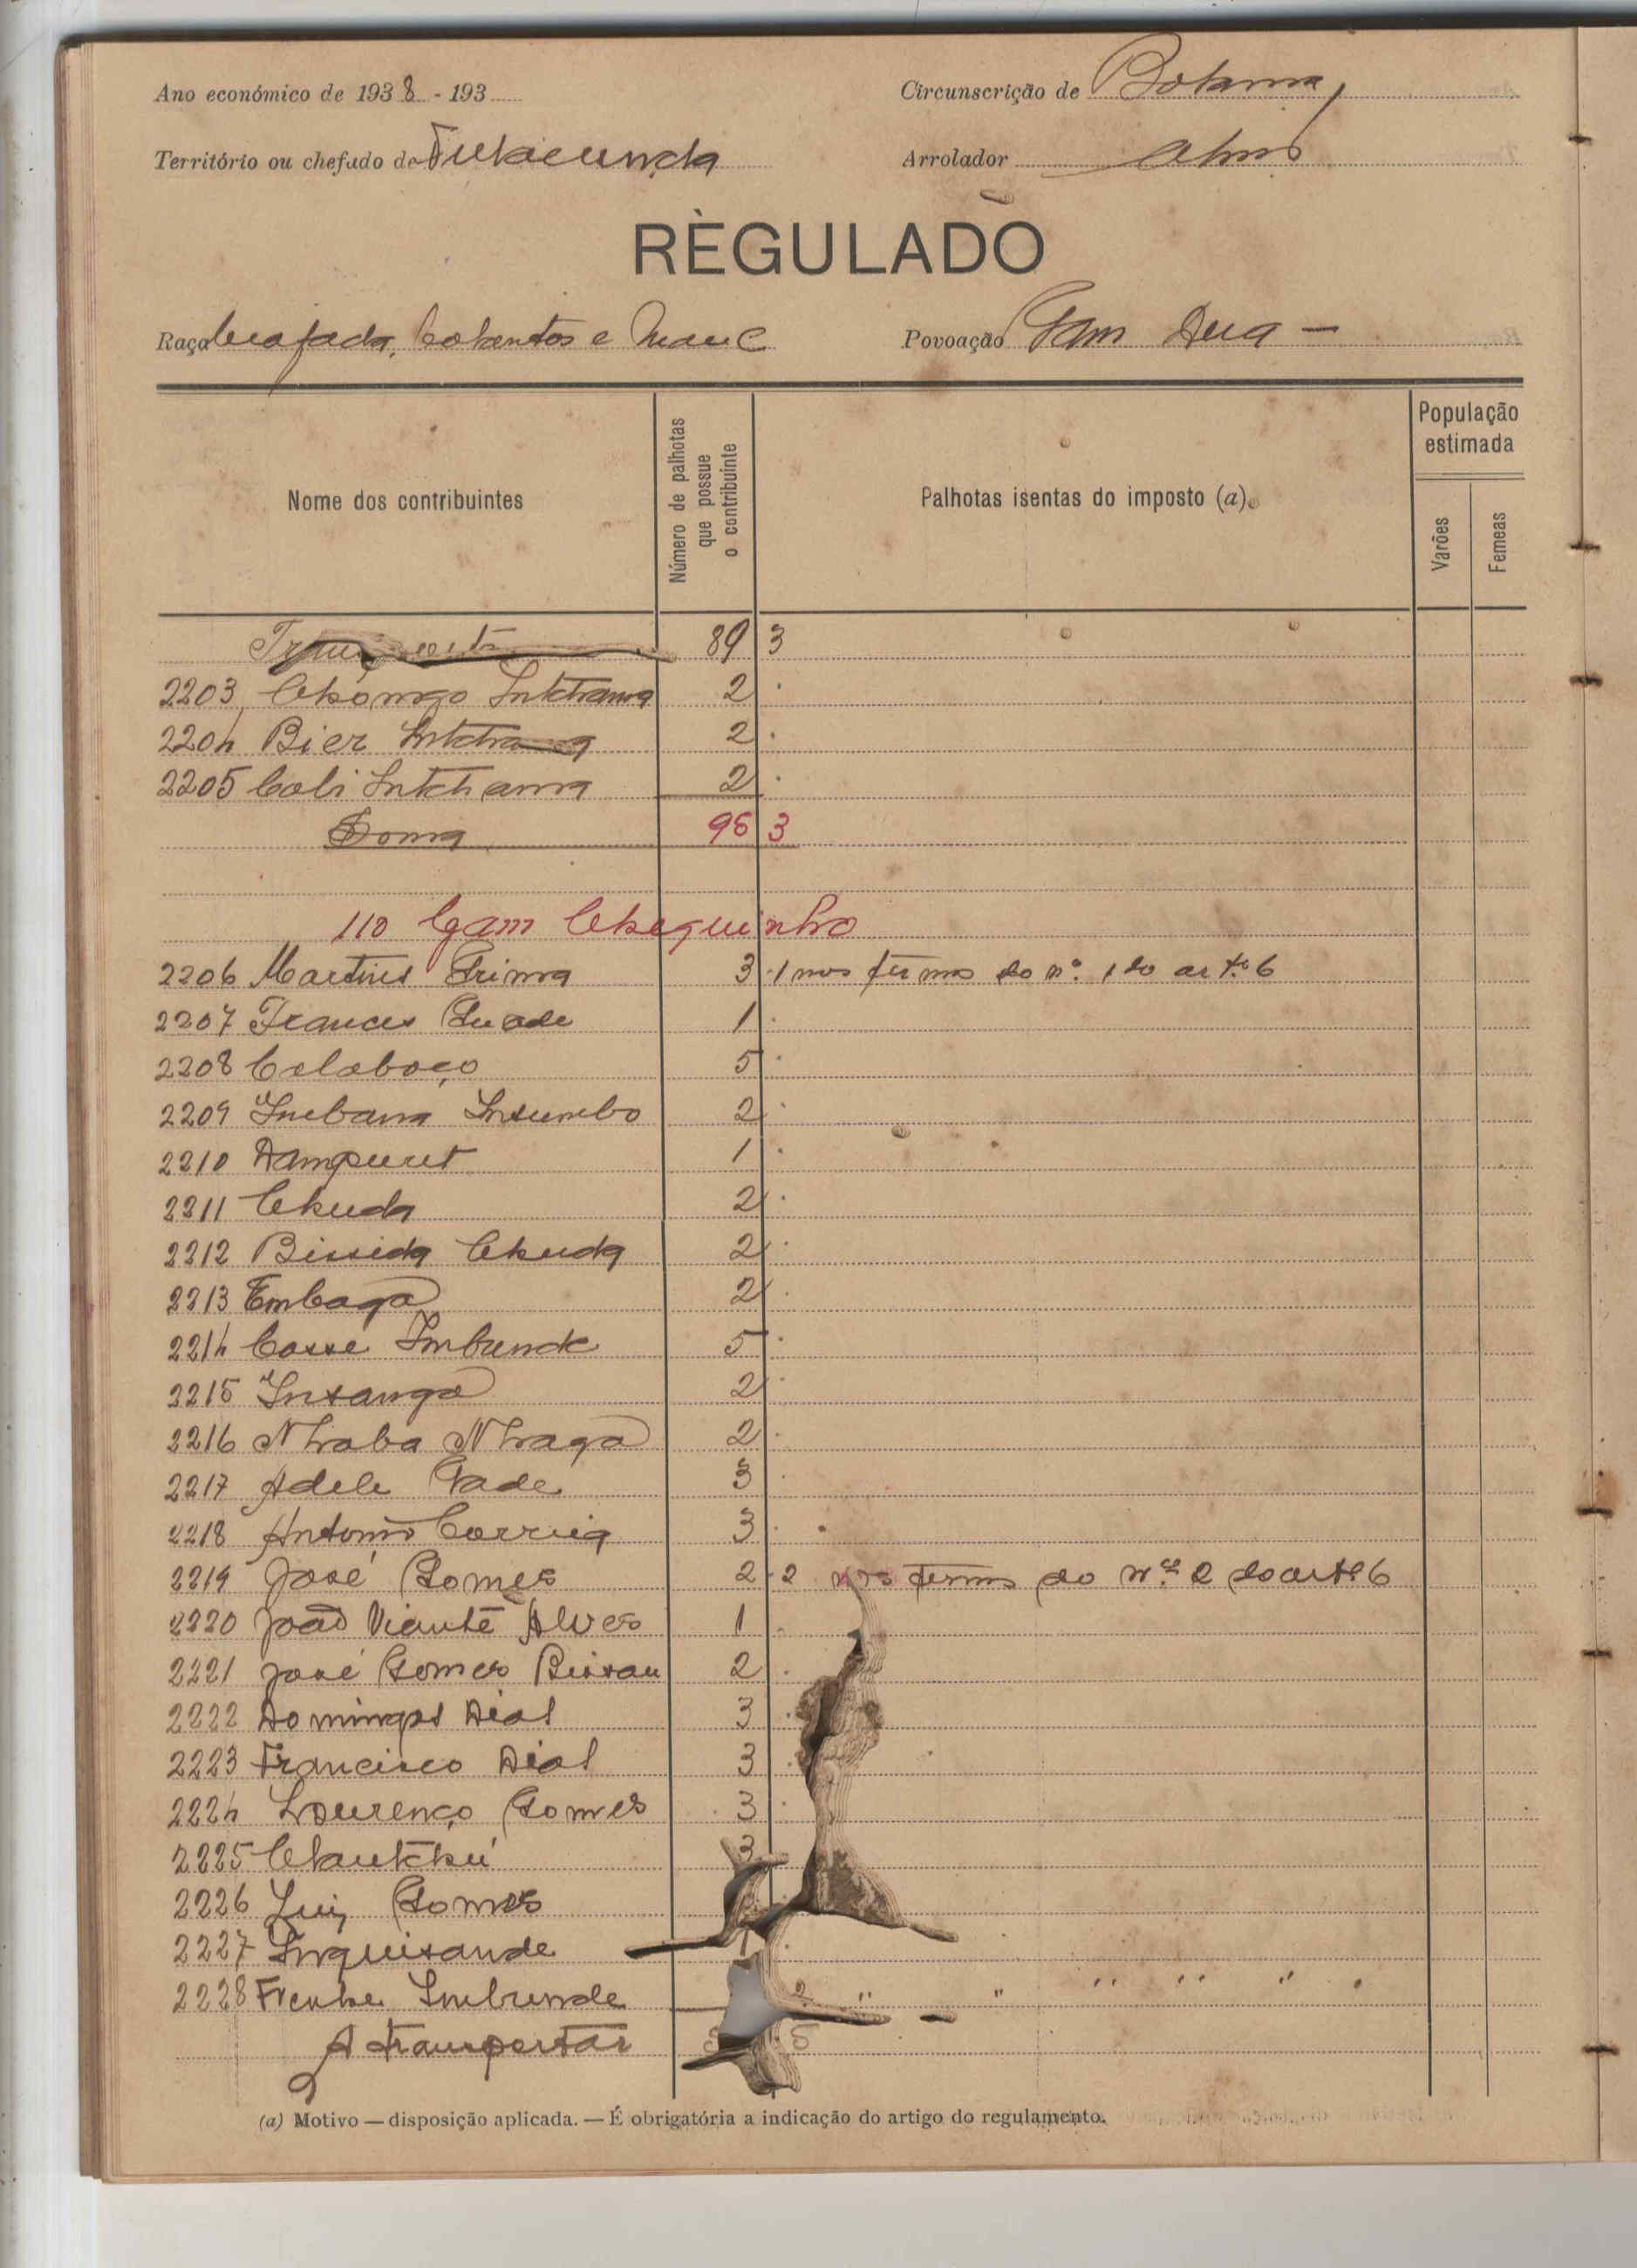 Ano económico de 1938 - 193
Circunscrição de Bolama
Território ou chefado de Fulacunda
Arrolador
REGULADO
Raça Beafada, Balantas e Manc
Povoação Gam Dua -
Nome dos contribuintes
Número de palhotas que possue o contribuinte
Palhotas isentas do imposto (a)
População estimada
Varões
Femeas
Transporte 89 3
2203 Intchama 2
2204 Bier Intchama 2
2205 Cali Intchama 2
Soma 95 3
110 Gam Chequinho
2206 Martins 3 1 nos termos do nº 1 do artº 6
2207 Frances Quade 1
2208 Calaboço 5
2209 Insumbo 2
2210 1
2211 Chuda 2
2212 Bissida Chuda 2
2213 Embaga 2
2214 Casse Imbunde 5
2215 Insanga 2
2216 Nhaba Nhaga 2
2217 Adele Nade 3
2218 Antonio Correia 3
2219 José Gomes 2 2 nos termos do nº 2 do artº 6
2220 João Vicente Alves 1
2221 José Gomes Bissau 2
2222 Domingos Dias 3
2223 Francisco Dias 3
2224 Lourenço Gomes 3
2225 3
2226 Luiz Gomes
2227 Inquisande
2228 Imbunde 2 " " " " "
A transportar
(a) Motivo — disposição aplicada. — É obrigatória a indicação do artigo do regulamento.